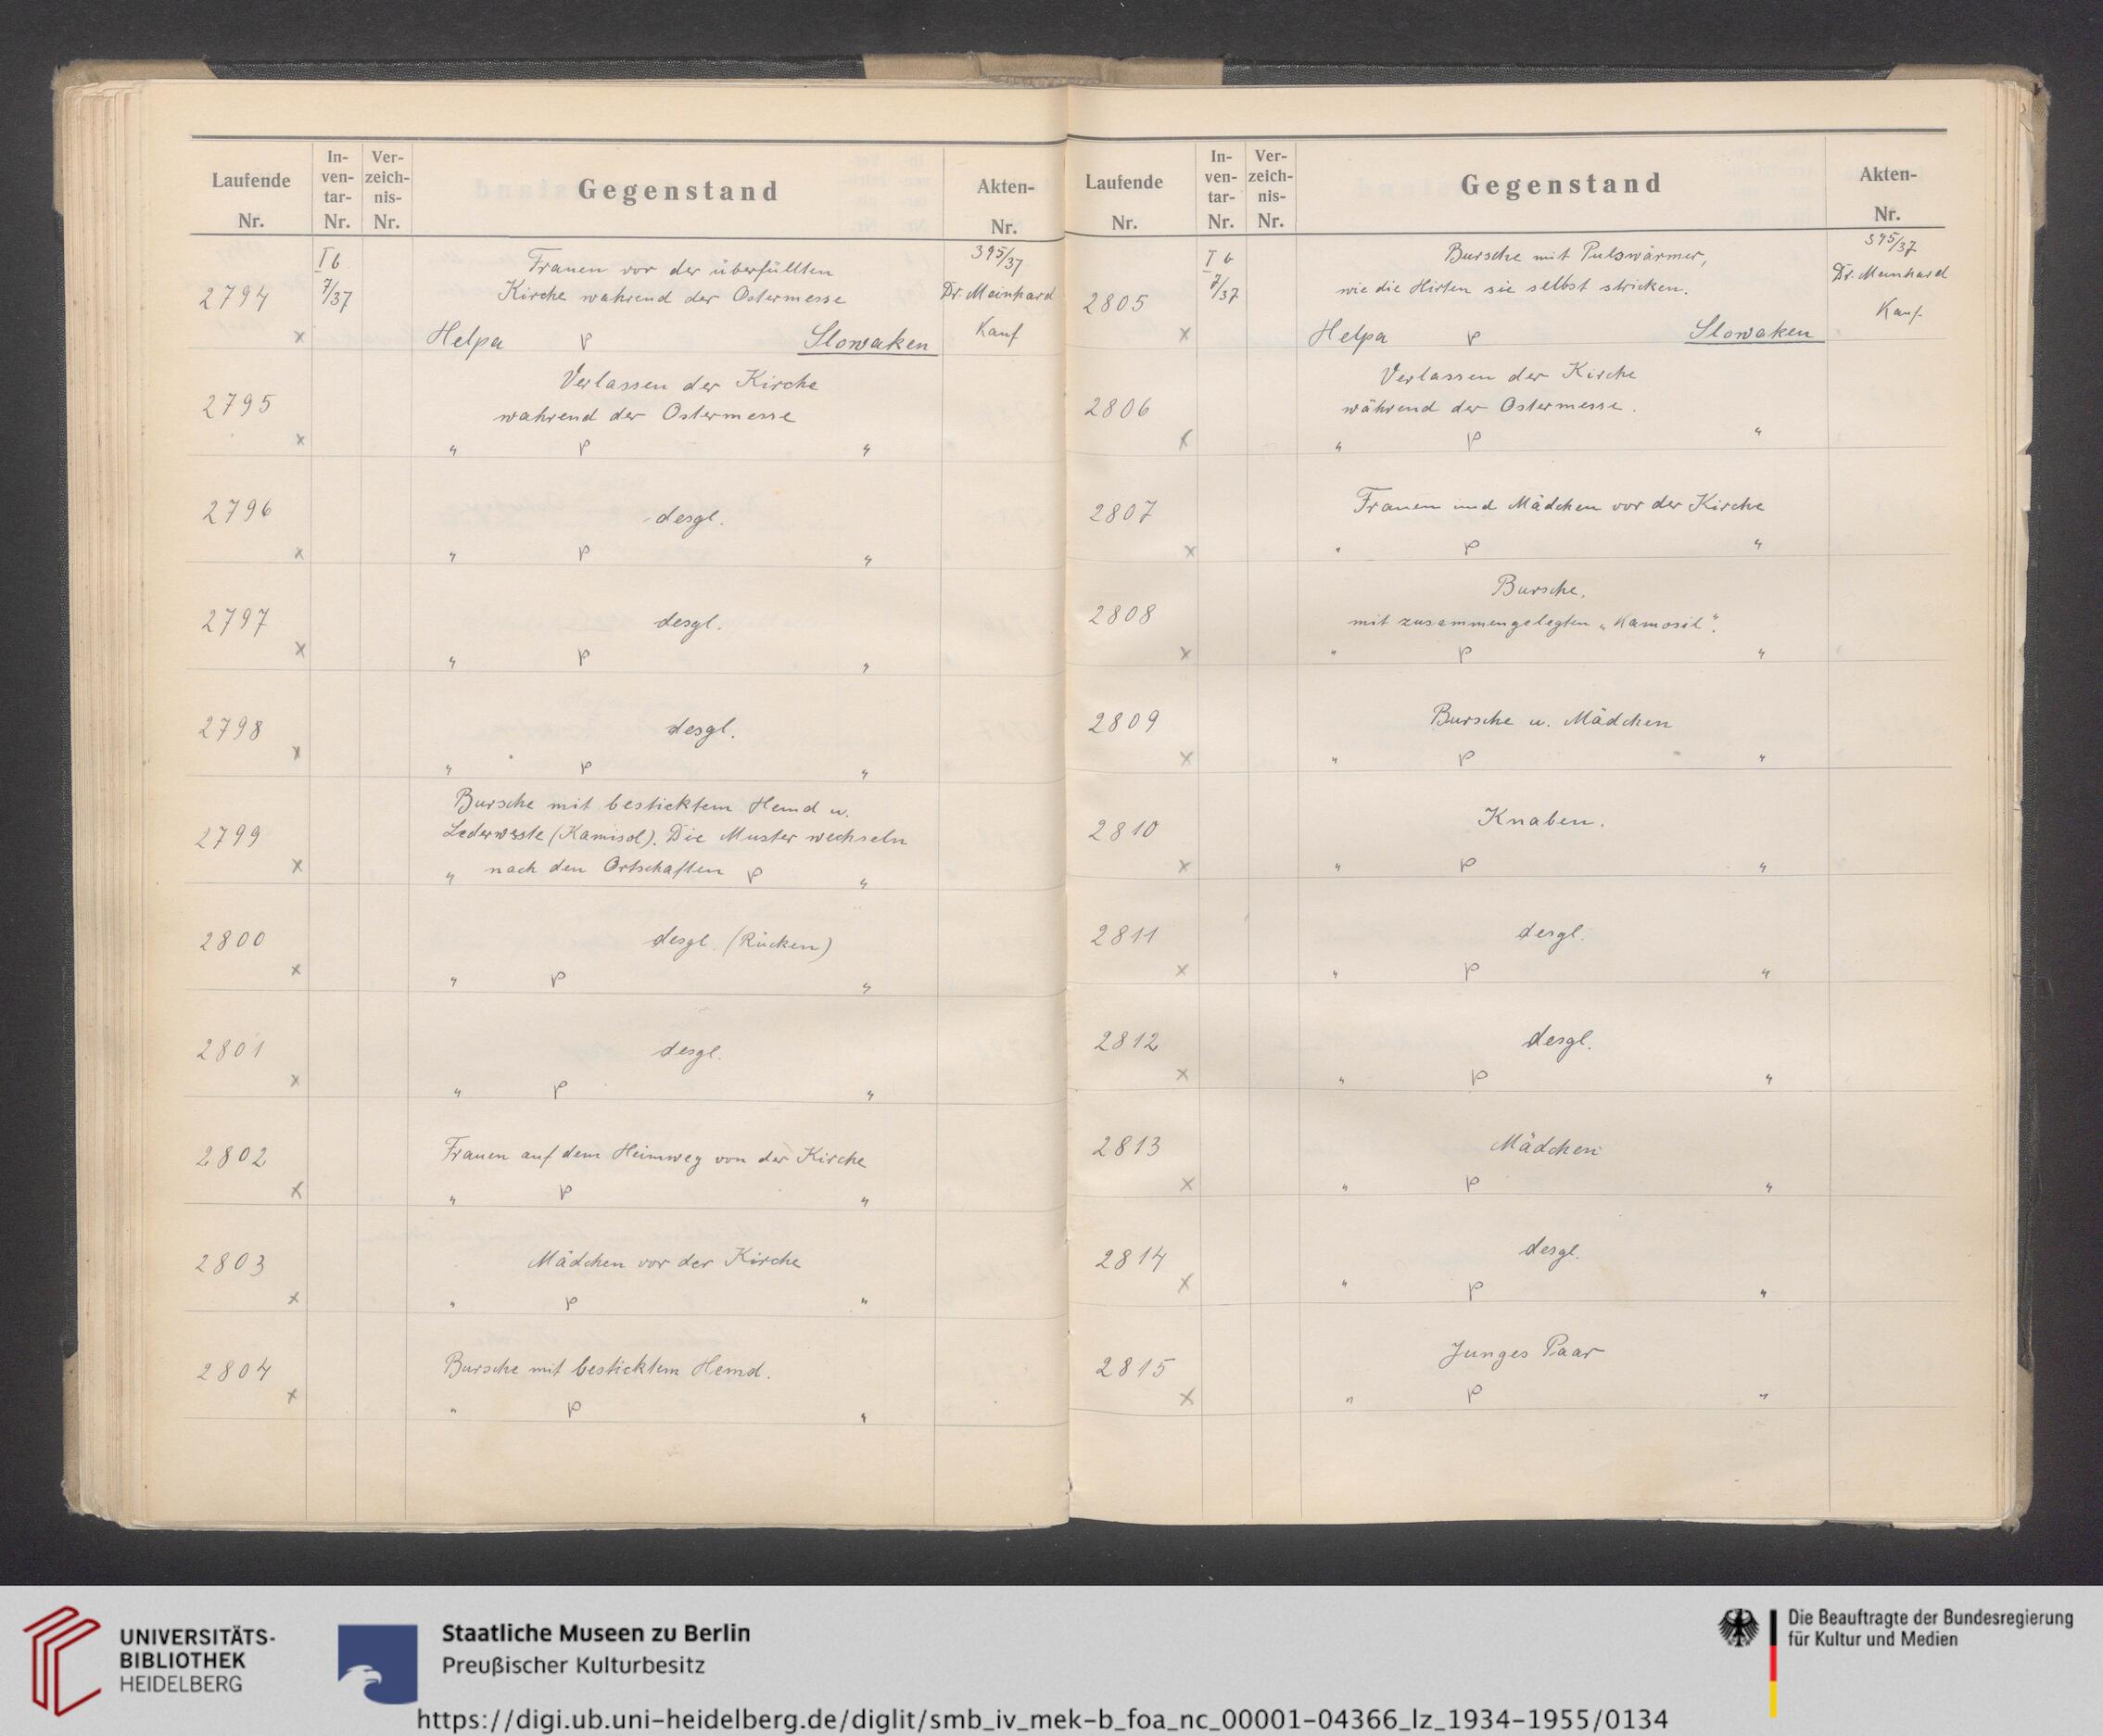 Laufende Nr. In-ven-tar-Nr. Ver-zeich-nis-Nr. Gegenstand Akten-Nr.
I b 395/37
Frauen vor der überfüllten
2794 7/37 Kirche wahrend der Ostermesse Dr. Meinhard
x Helpa P Slowaken Kauf
Verlassen der Kirche
2795 wahrend der Ostermesse
x " P "
2796 desgl.
x " P "
2797 desgl.
x " P "
2798 desgl.
x " P "
Bursche mit besticktem Hemd u.
2799 Lederweste (Kamisol). Die Muster wechseln
x " nach den Ortschaften P "
2800 desgl. (Rücken)
x " P "
2801 desgl.
x " P "
2802 Frauen auf dem Heimweg von der Kirche
x " P "
2803 Mädchen vor der Kirche
x " P "
2804 Bursche mit besticktem Hemd.
x " P "
Laufende Nr. In-ven-tar-Nr. Ver-zeich-nis-Nr. Gegenstand Akten-Nr.
I b Bursche mit Pulswärmer, 395/37
2805 7/37 wie die Hirten sie selbst stricken. Dr. Meinhard
x Helpa P Slowaken Kauf
Verlassen der Kirche
2806 während der Ostermesse.
x " P "
2807 Frauen und Mädchen vor der Kirche
x " P "
Bursche,
2808 mit zusammengelegten „Kamosil".
x " P "
2809 Bursche u. Mädchen
x " P "
2810 Knaben.
x " P "
2811 desgl.
x " P "
2812 desgl.
x " P "
2813 Mädchen
x " P "
2814 desgl.
x " P "
2815 Junges Paar
x " P "
UNIVERSITÄTS-
BIBLIOTHEK
HEIDELBERG
Staatliche Museen zu Berlin
Preußischer Kulturbesitz
Die Beauftragte der Bundesregierung
für Kultur und Medien
https://digi.ub.uni-heidelberg.de/diglit/smb_iv_mek-b_foa_nc_00001-04366_lz_1934-1955/0134